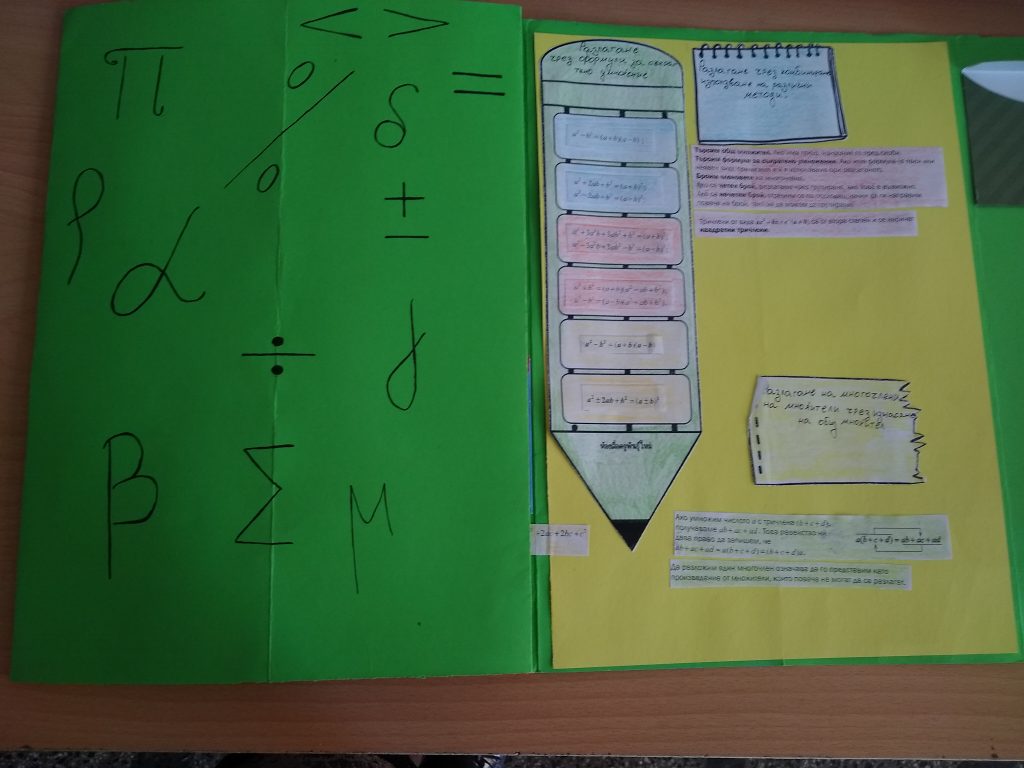 < >
π % δ =
ρ α ±
÷ γ
β Σ μ
Разлагане
чрез формули за съкра-
тено умножение
a² − b² = (a + b)(a − b)
a² + 2ab + b² = (a + b)²;
a² − 2ab + b² = (a − b)²
a³ + 3a²b + 3ab² + b³ = (a + b)³
a³ − 3a²b + 3ab² − b³ = (a − b)³
a³ + b³ = (a + b)(a² − ab + b²),
a³ − b³ = (a − b)(a² + ab + b²)
a² − b² = (a + b)(a − b)
a² ± 2ab + b² = (a ± b)²
-2ac + 2bc + c²
Разлагане чрез комбинирано
използване на различни
методи
Търсим общ множител.
Търсим формула за съкратено умножение.
Броим членовете на многочлена.
Ако са четен брой, разлагаме чрез групиране, ако това е възможно.
Ако са нечетен брой,
квадратни тричлени.
Разлагане на многочлени
на множители чрез изнасяне
на общ множител
Ако умножим числото a с тричлена (b + c + d),
получаваме ab + ac + ad. Това равенство ни
дава право да запишем, че
ab + ac + ad = a(b + c + d) = (b + c + d)a.
a(b + c + d) = ab + ac + ad
Да разложим един многочлен означава да го представим като
произведение от множители, които повече не могат да се разлагат.